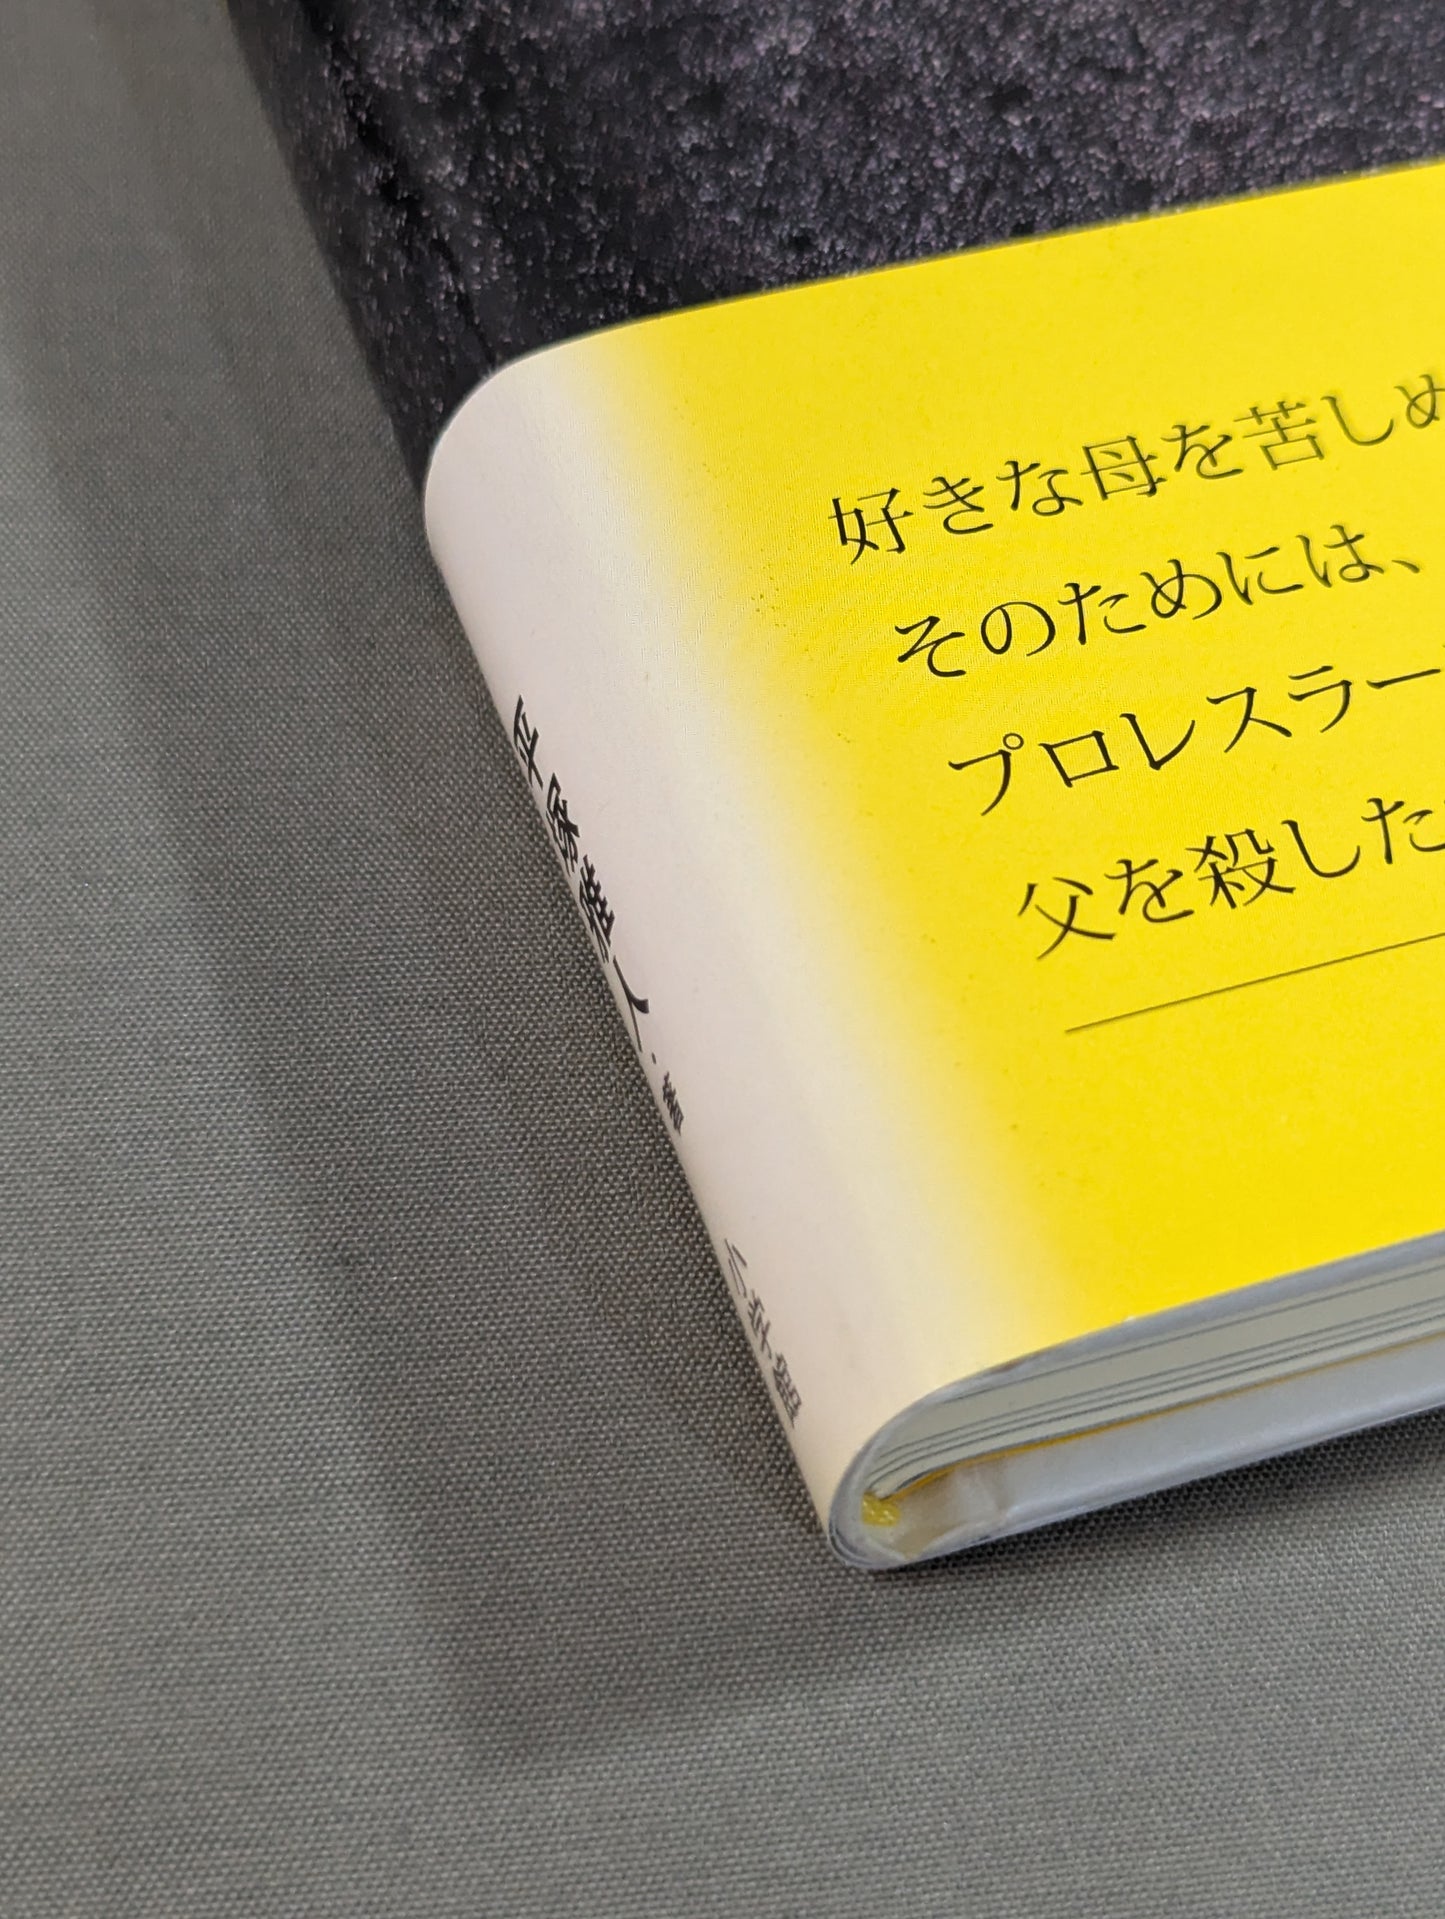 好きな母を苦しめ
そのためには、
プロレスラー
父を殺した